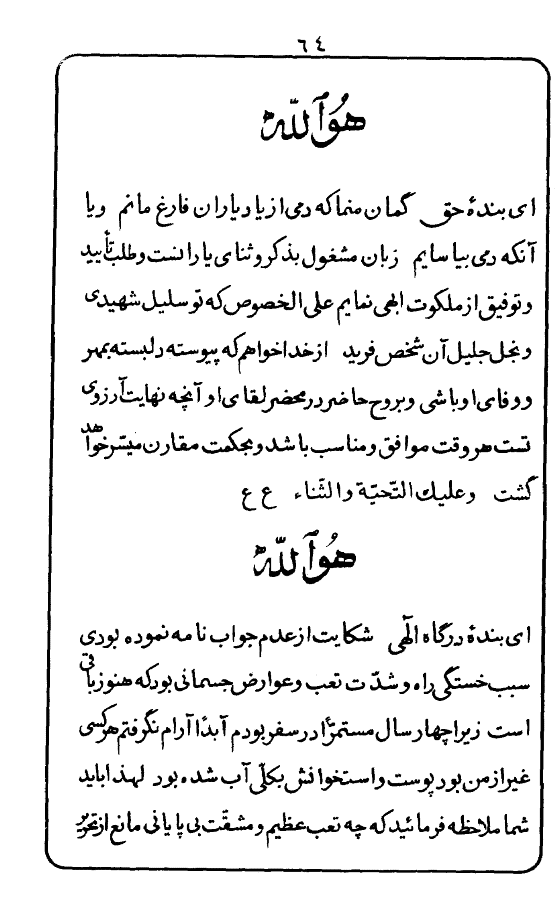 ٦٤
هُوَاللّه
ای بندهٔ حق گمان منما که دمی از یاد یاران فارغ مانم ویا
آنکه دمی بیاسایم زبان مشغول بذکر و ثنای یارانست و طلب تأیید
و توفیق از ملکوت الهی نمایم علی الخصوص که تو سلیل شهیدی
و نجل جلیل آن شخص فرید از خدا خواهم که پیوسته دلبسته بمهر
و وفای او باشی و بروح حاضر در محضر لقای او آنچه نهایت آرزوی
تست هر وقت موافق و مناسب باشد و بحکمت مقارن میسّر خواهد
گشت وعلیك التّحیّة والثّناء ع ع
هُوَاللّه
ای بندهٔ درگاه الهی شکایت از عدم جواب نامه نموده بودی
سبب خستگی راه و شدّت تعب و عوارض جسمانی بود که هنوز باقی
است زیرا چهار سال مستمرّاً در سفر بودم آبداً آرام نگرفتم هر کسی
غیر از من بود پوست و استخوانش بکلّی آب شده بود لهذا باید
شما ملاحظه فرمائید که چه تعب عظیم و مشقّت بی پایانی مانع از تحریر